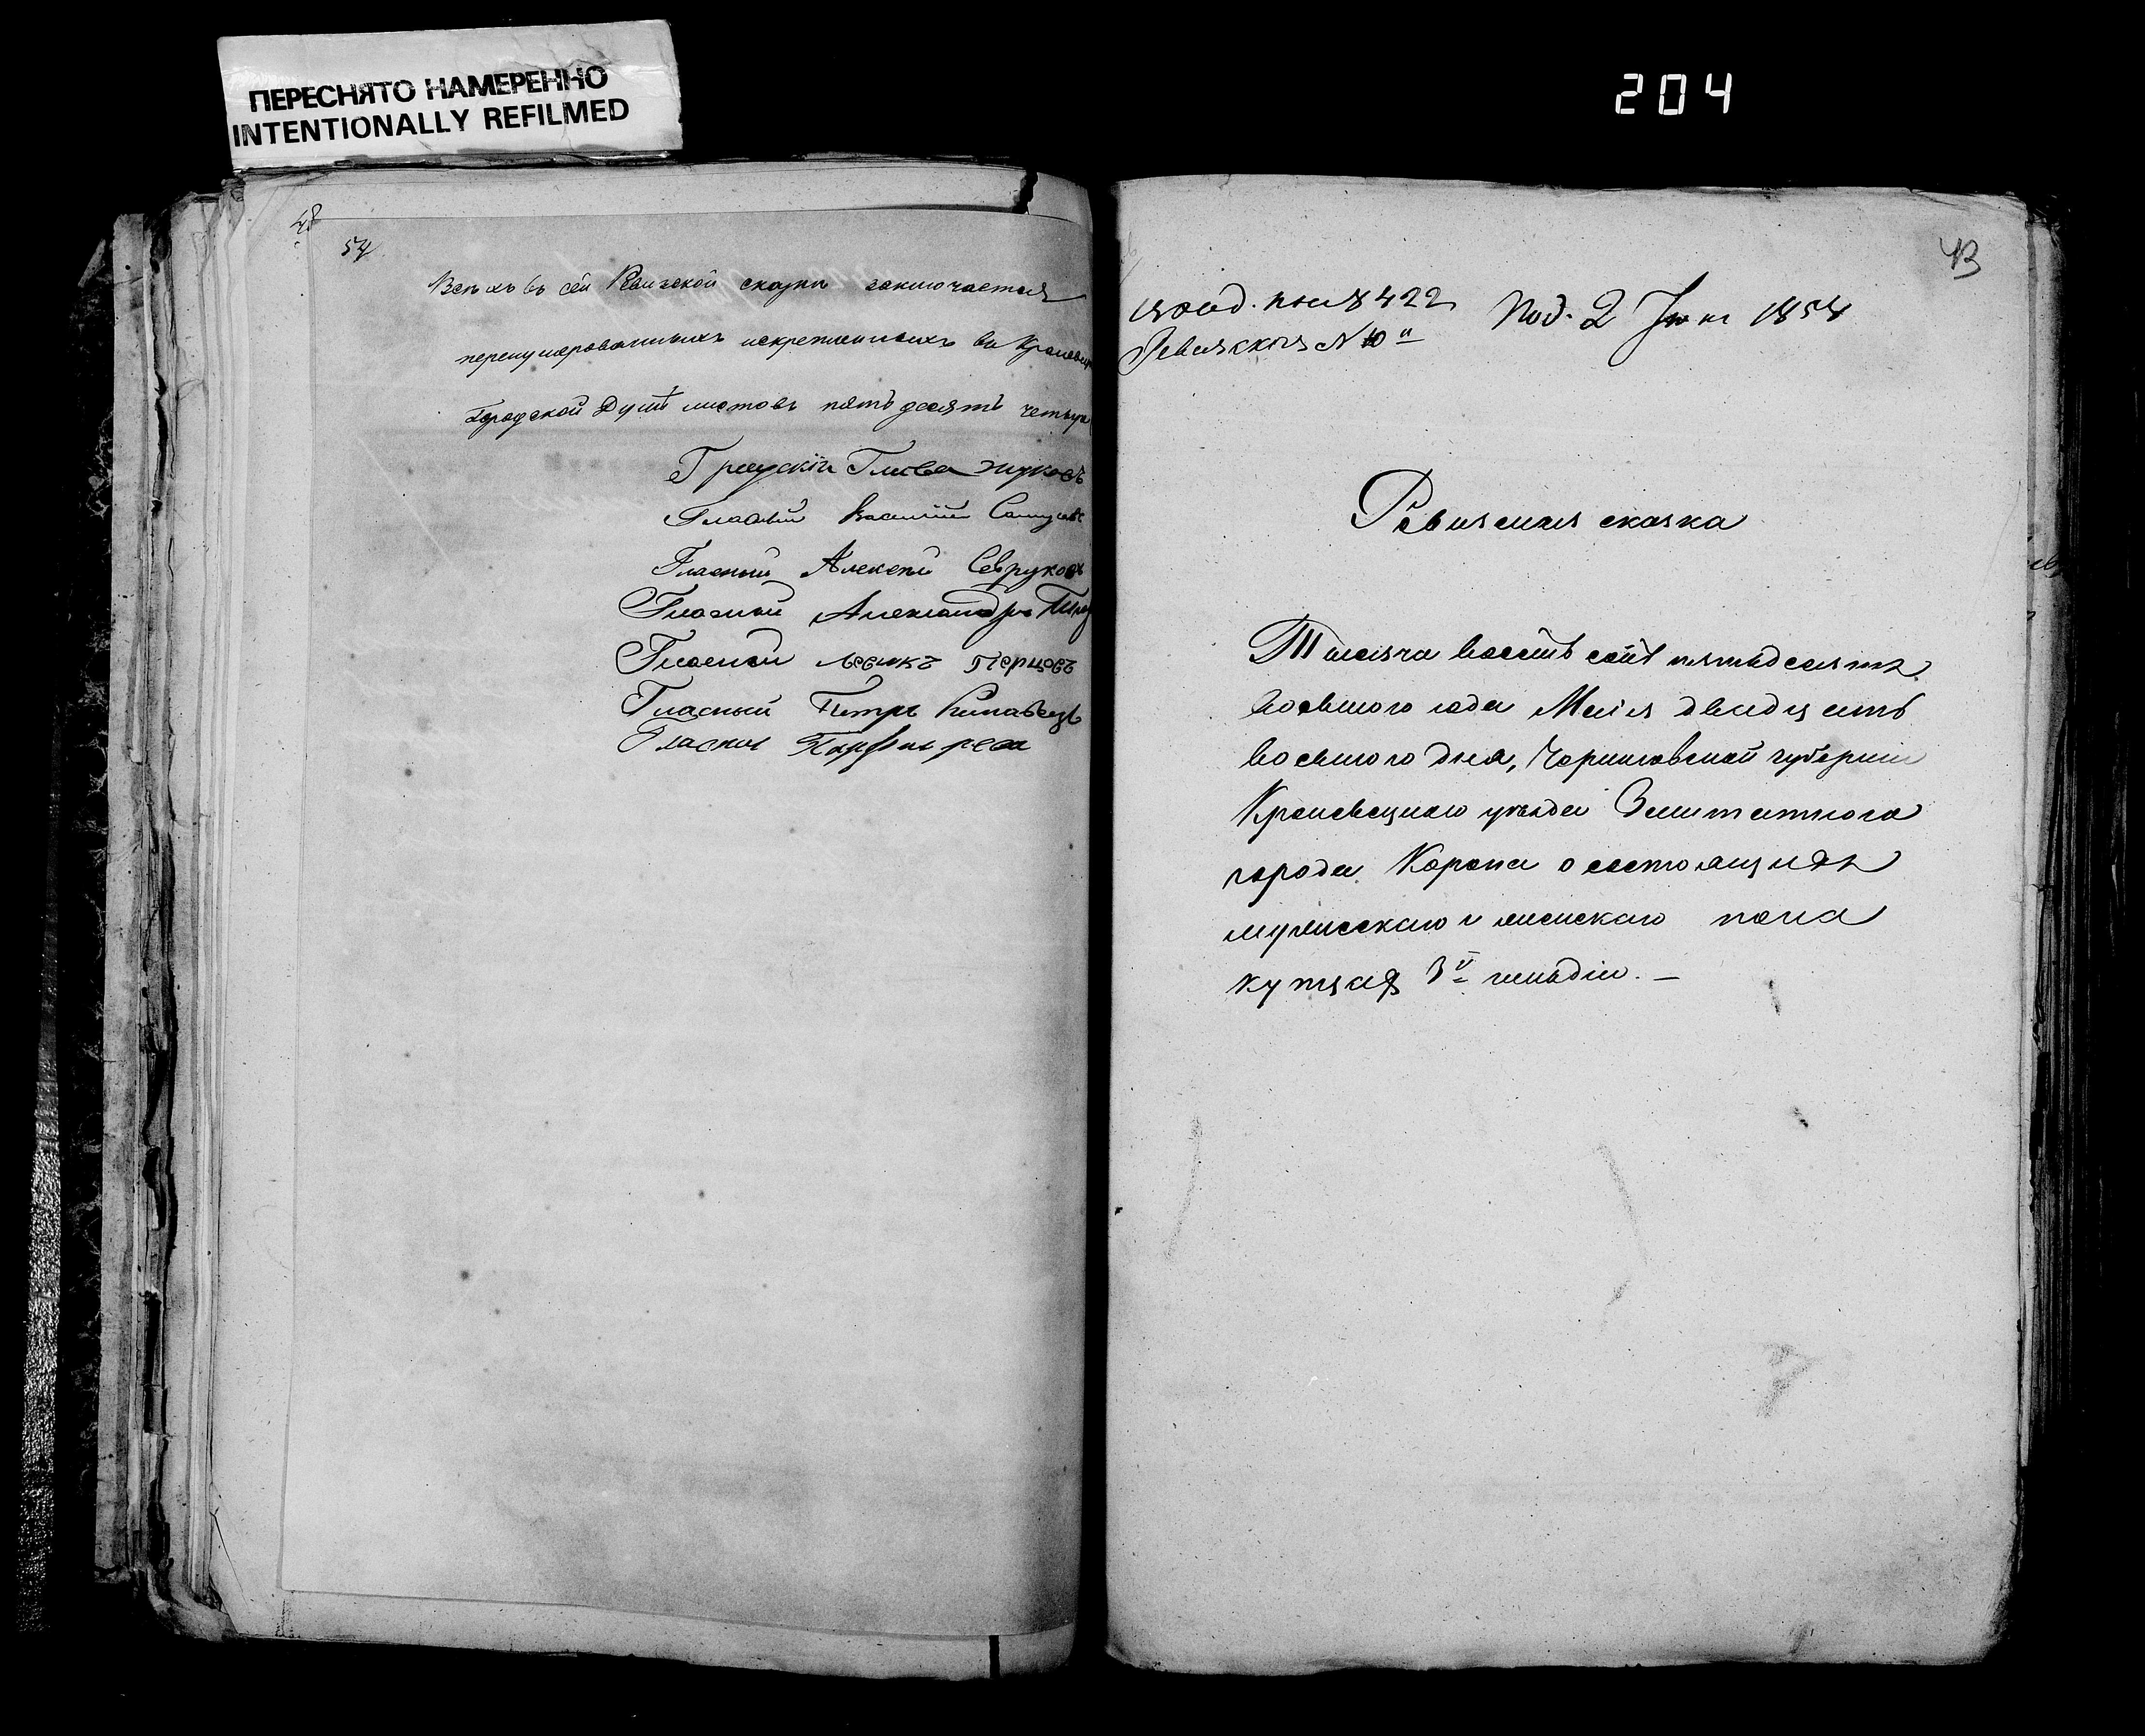 ПЕРЕСНЯТО НАМЕРЕННО
INTENTIONALLY REFILMED
204
48
54
Всѣхъ въ сей Ревизской сказки заключается
перенумерованныхъ искрепленныхъ въ Кролевец
Городской Думѣ листовъ пятьдесятъ четыре
Градскій Глава Жуковъ
Гласный Василій
Гласный Алексѣй Севрюковъ
Гласный Александръ
Гласный Перцовъ
Гласный Петръ
Гласный
№ 422 Под. 2 Іюня 1858
Ревизская №
Ревизская сказка
Тысяча восемь сотъ пятьдесятъ
восьмого года Маія двадцать
восьмого дня, Черниговской губерніи
Кролевецкаго уѣзда Заштатнаго
города Коропа о состоящихъ
мужескаго и женскаго пола
купцахъ 3й гильдіи. —